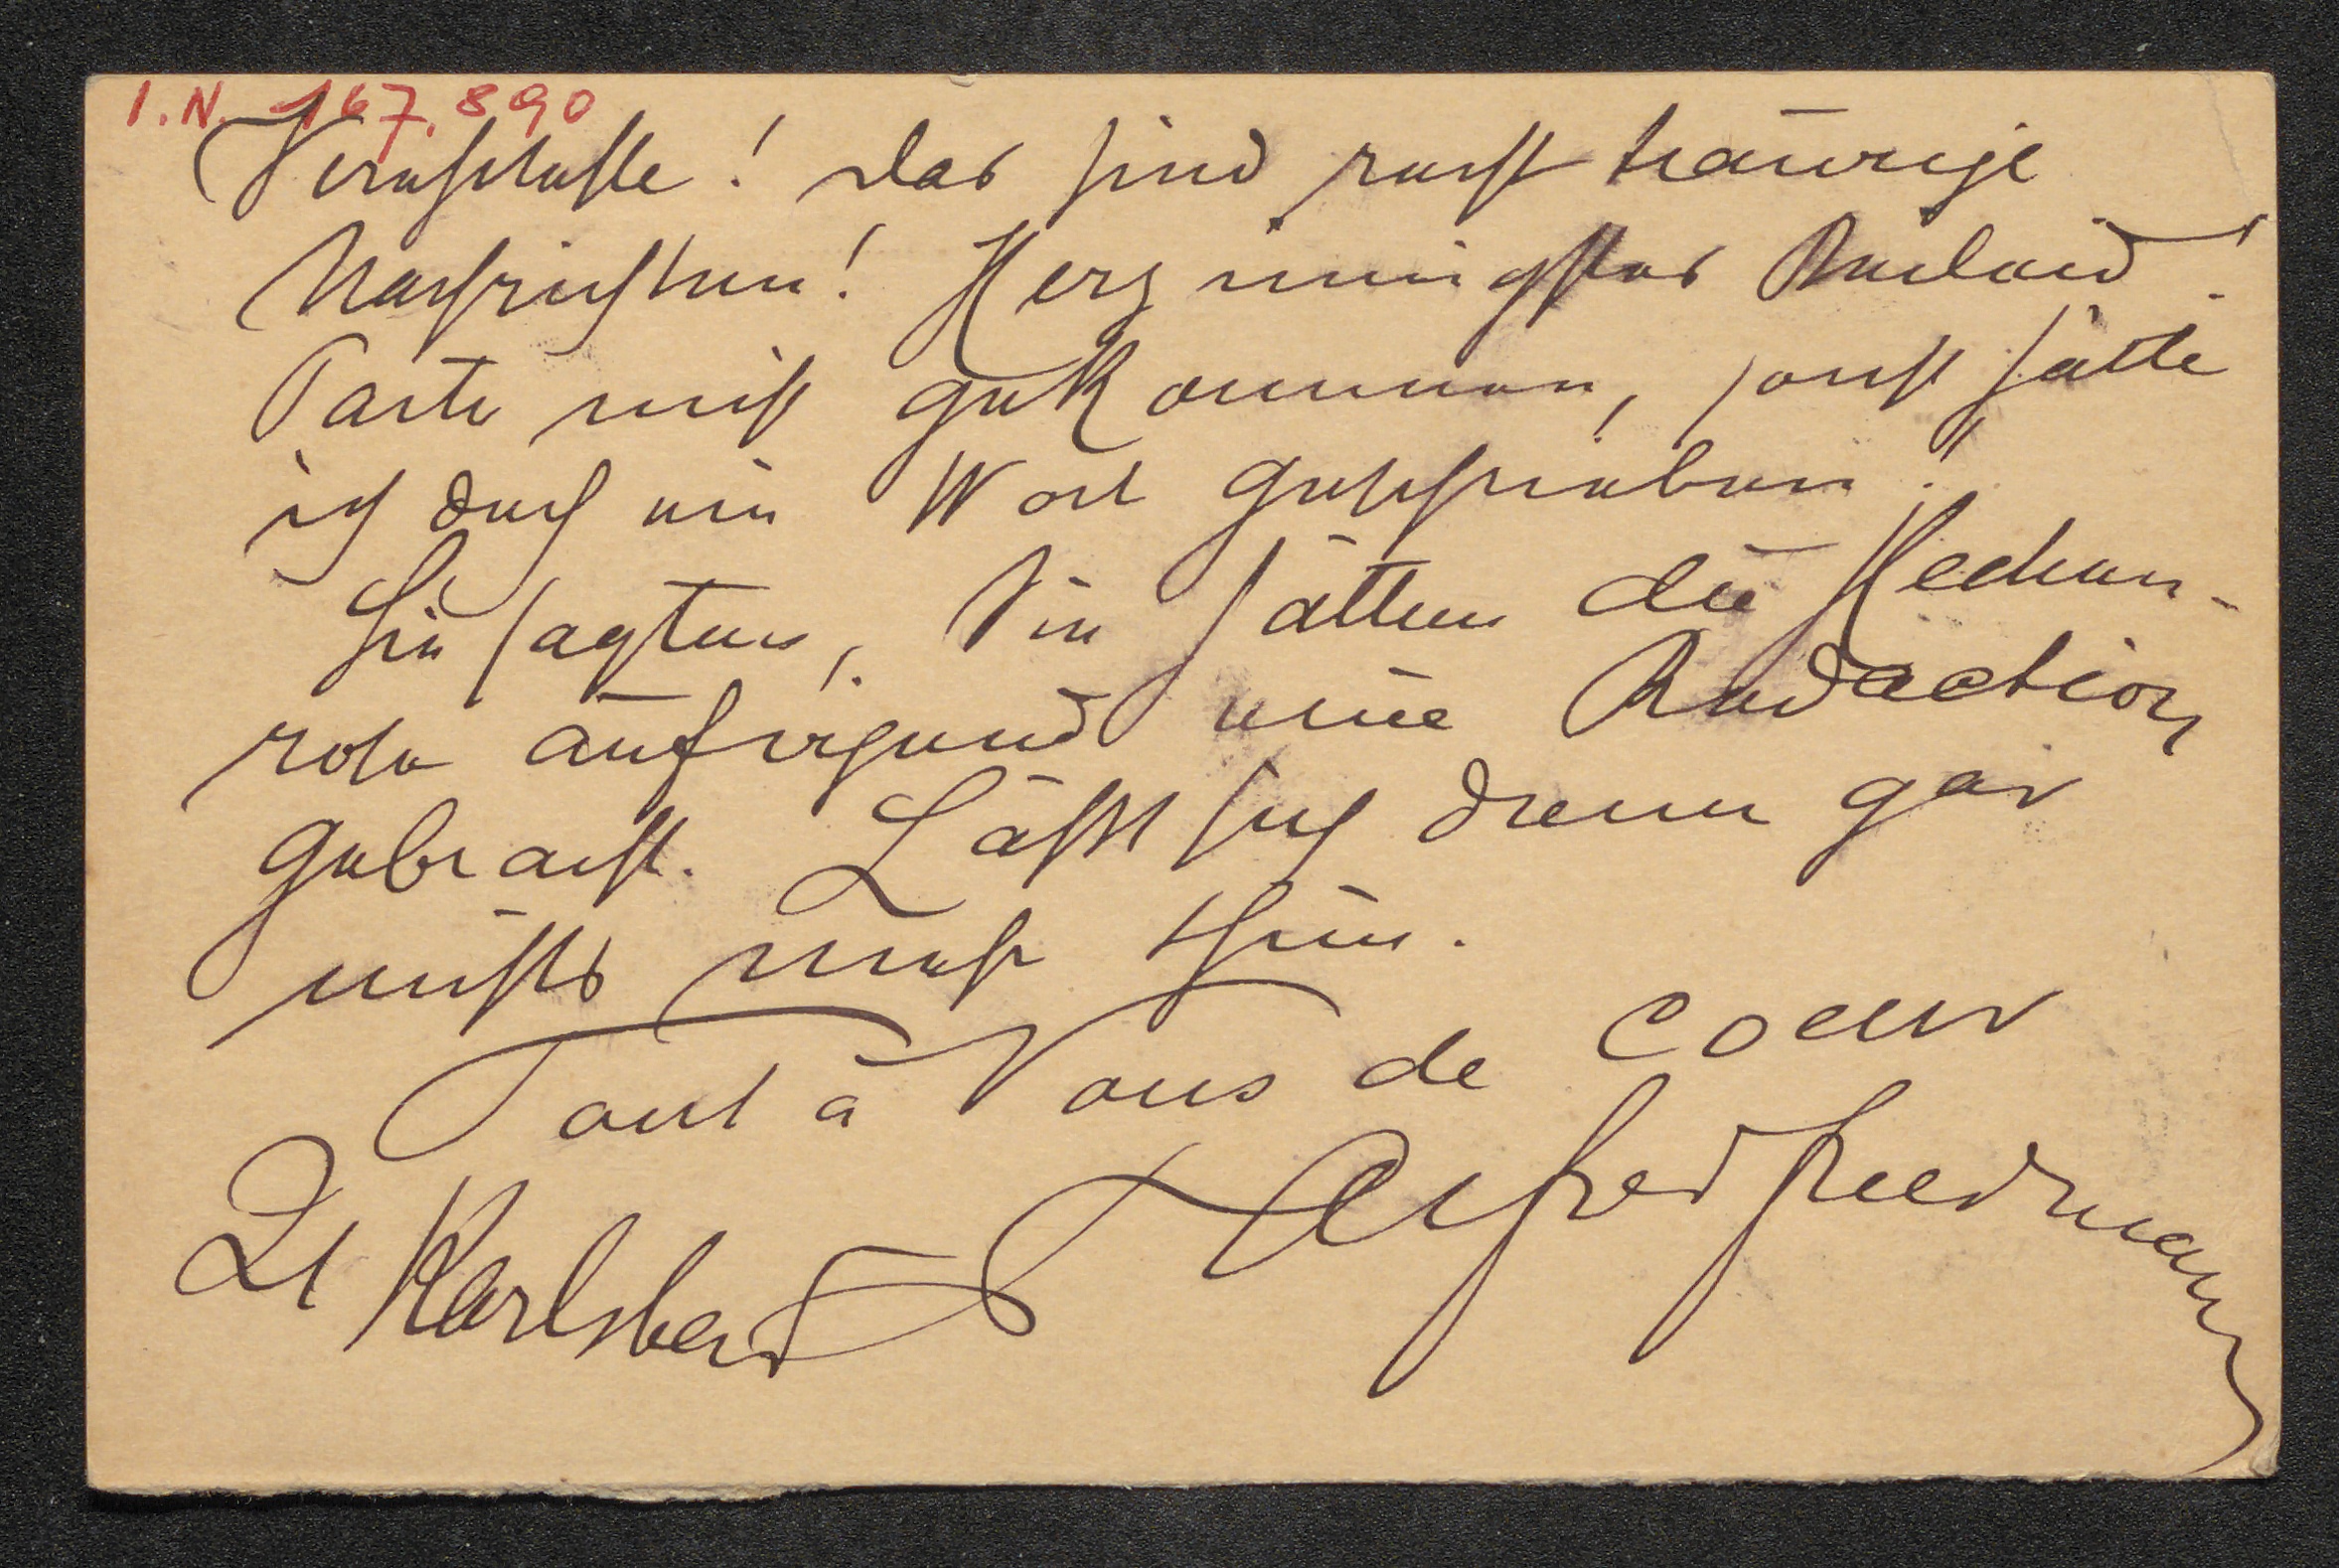 I.N. 167.890
Verehrteste! Das sind recht traurige
Nachrichten! Herzinnigstes Beileid!
Parte nicht gekommen, sonst hätte
ich doch ein Wort geschrieben!
Sie sagten, Sie hätten die
auf irgend eine Redaction
gebracht. Lässt sich denn gar
nichts mehr thun.
Tout à Vous de coeur
Alfred Friedmann
Zt Karlsbad